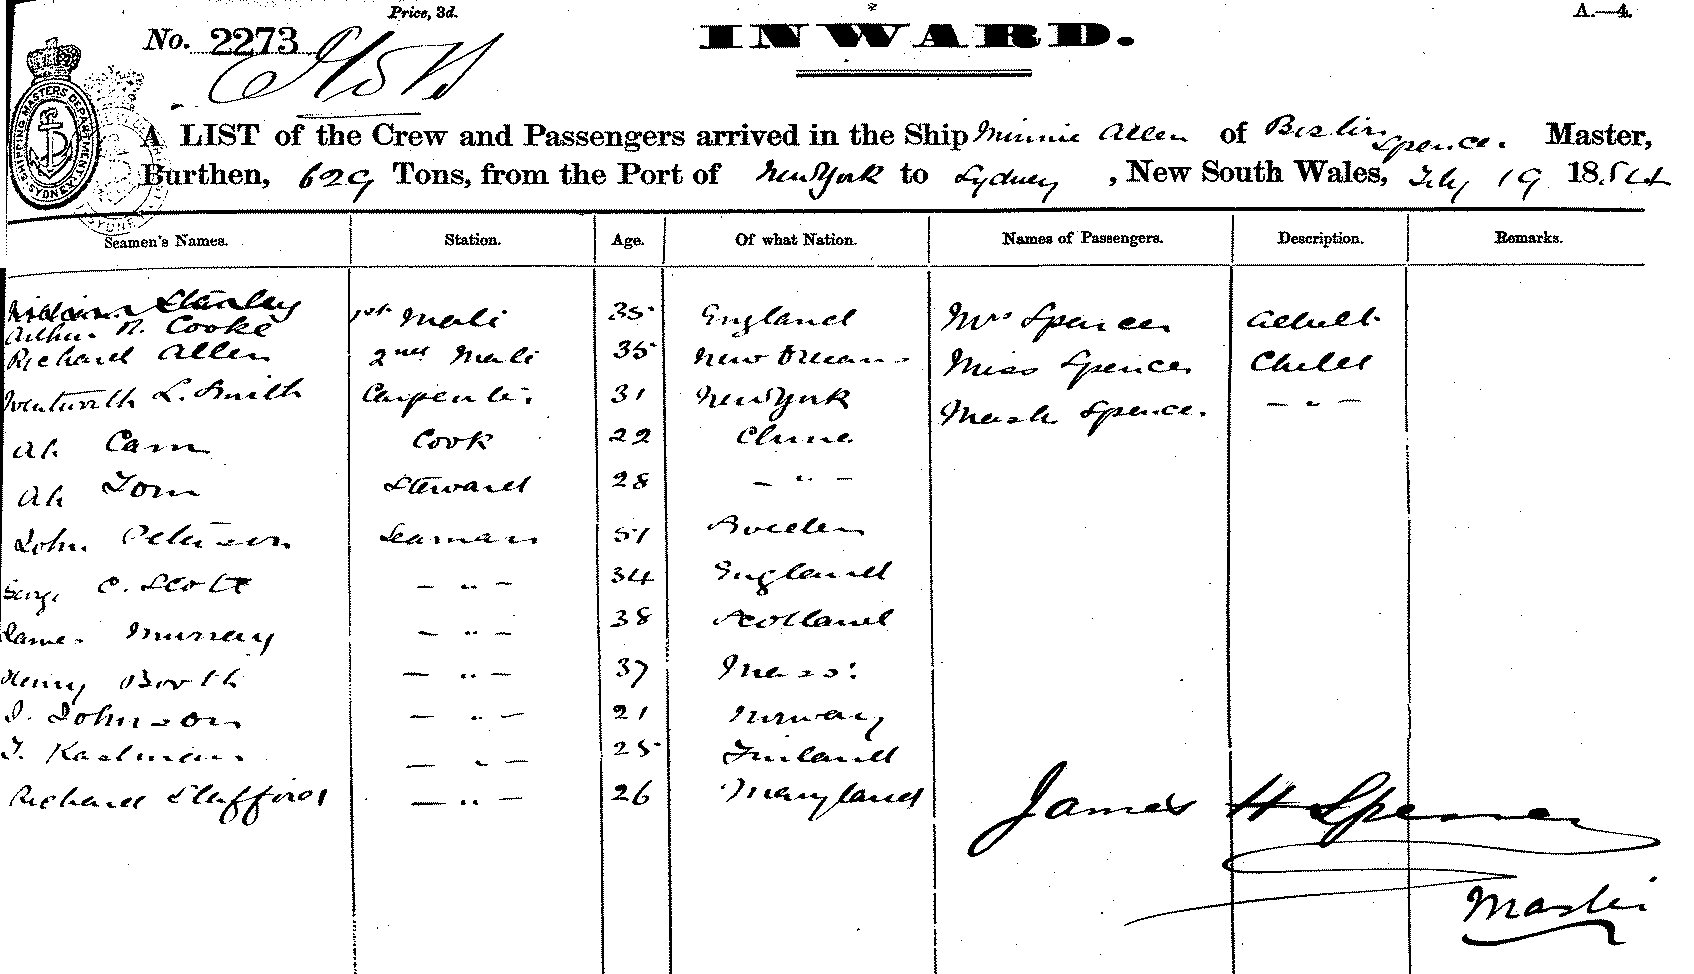 Price, 3d.
INWARD.
A.—4.
No. 2273
SHIPPING MASTERS DEPARTMENT SYDNEY
A LIST of the Crew and Passengers arrived in the Ship Minnie Allen of Boston Spencer Master,
Burthen, 629 Tons, from the Port of New York to Sydney, New South Wales, July 19 188
Seamen's Names. Station. Age. Of what Nation. Names of Passengers. Description. Remarks.
William Stanley
Arthur R. Cooke 1st Mate 35 England Mrs Spencer adult
Richard Allen 2nd Mate 35 New Orleans Miss Spencer Child
Wentworth L. Smith Carpenter 31 New York Mast Spencer — " —
Ah Cam Cook 22 China
Ah Tom Steward 28 — " —
John Peterson Seaman 51 Sweden
George C. Scott — " — 34 England
James Murray — " — 38 Scotland
Henry Booth — " — 37 Mass:
J. Johnson — " — 21 Norway
— " — 25 Finland
Richard Stafford — " — 26 Maryland
James H Spencer
Master